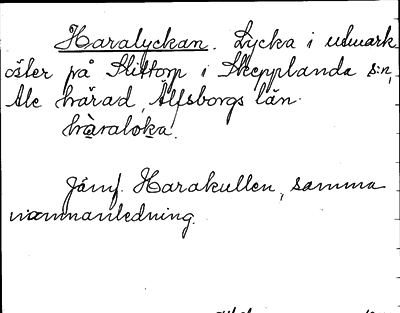 Haralyckan. Lycka i utmark
öster på Slittorp i Skepplanda s:n,
Ale härad, Älfsborgs län.
hàraloka.
Jämf. Harakullen, samma
namnanledning.